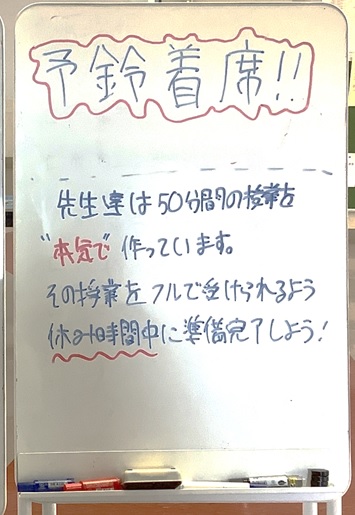 予鈴着席!!
先生達は50分間の授業を
"本気で"作っています。
その授業をフルで受けられるよう
休み時間中に準備完了しよう!